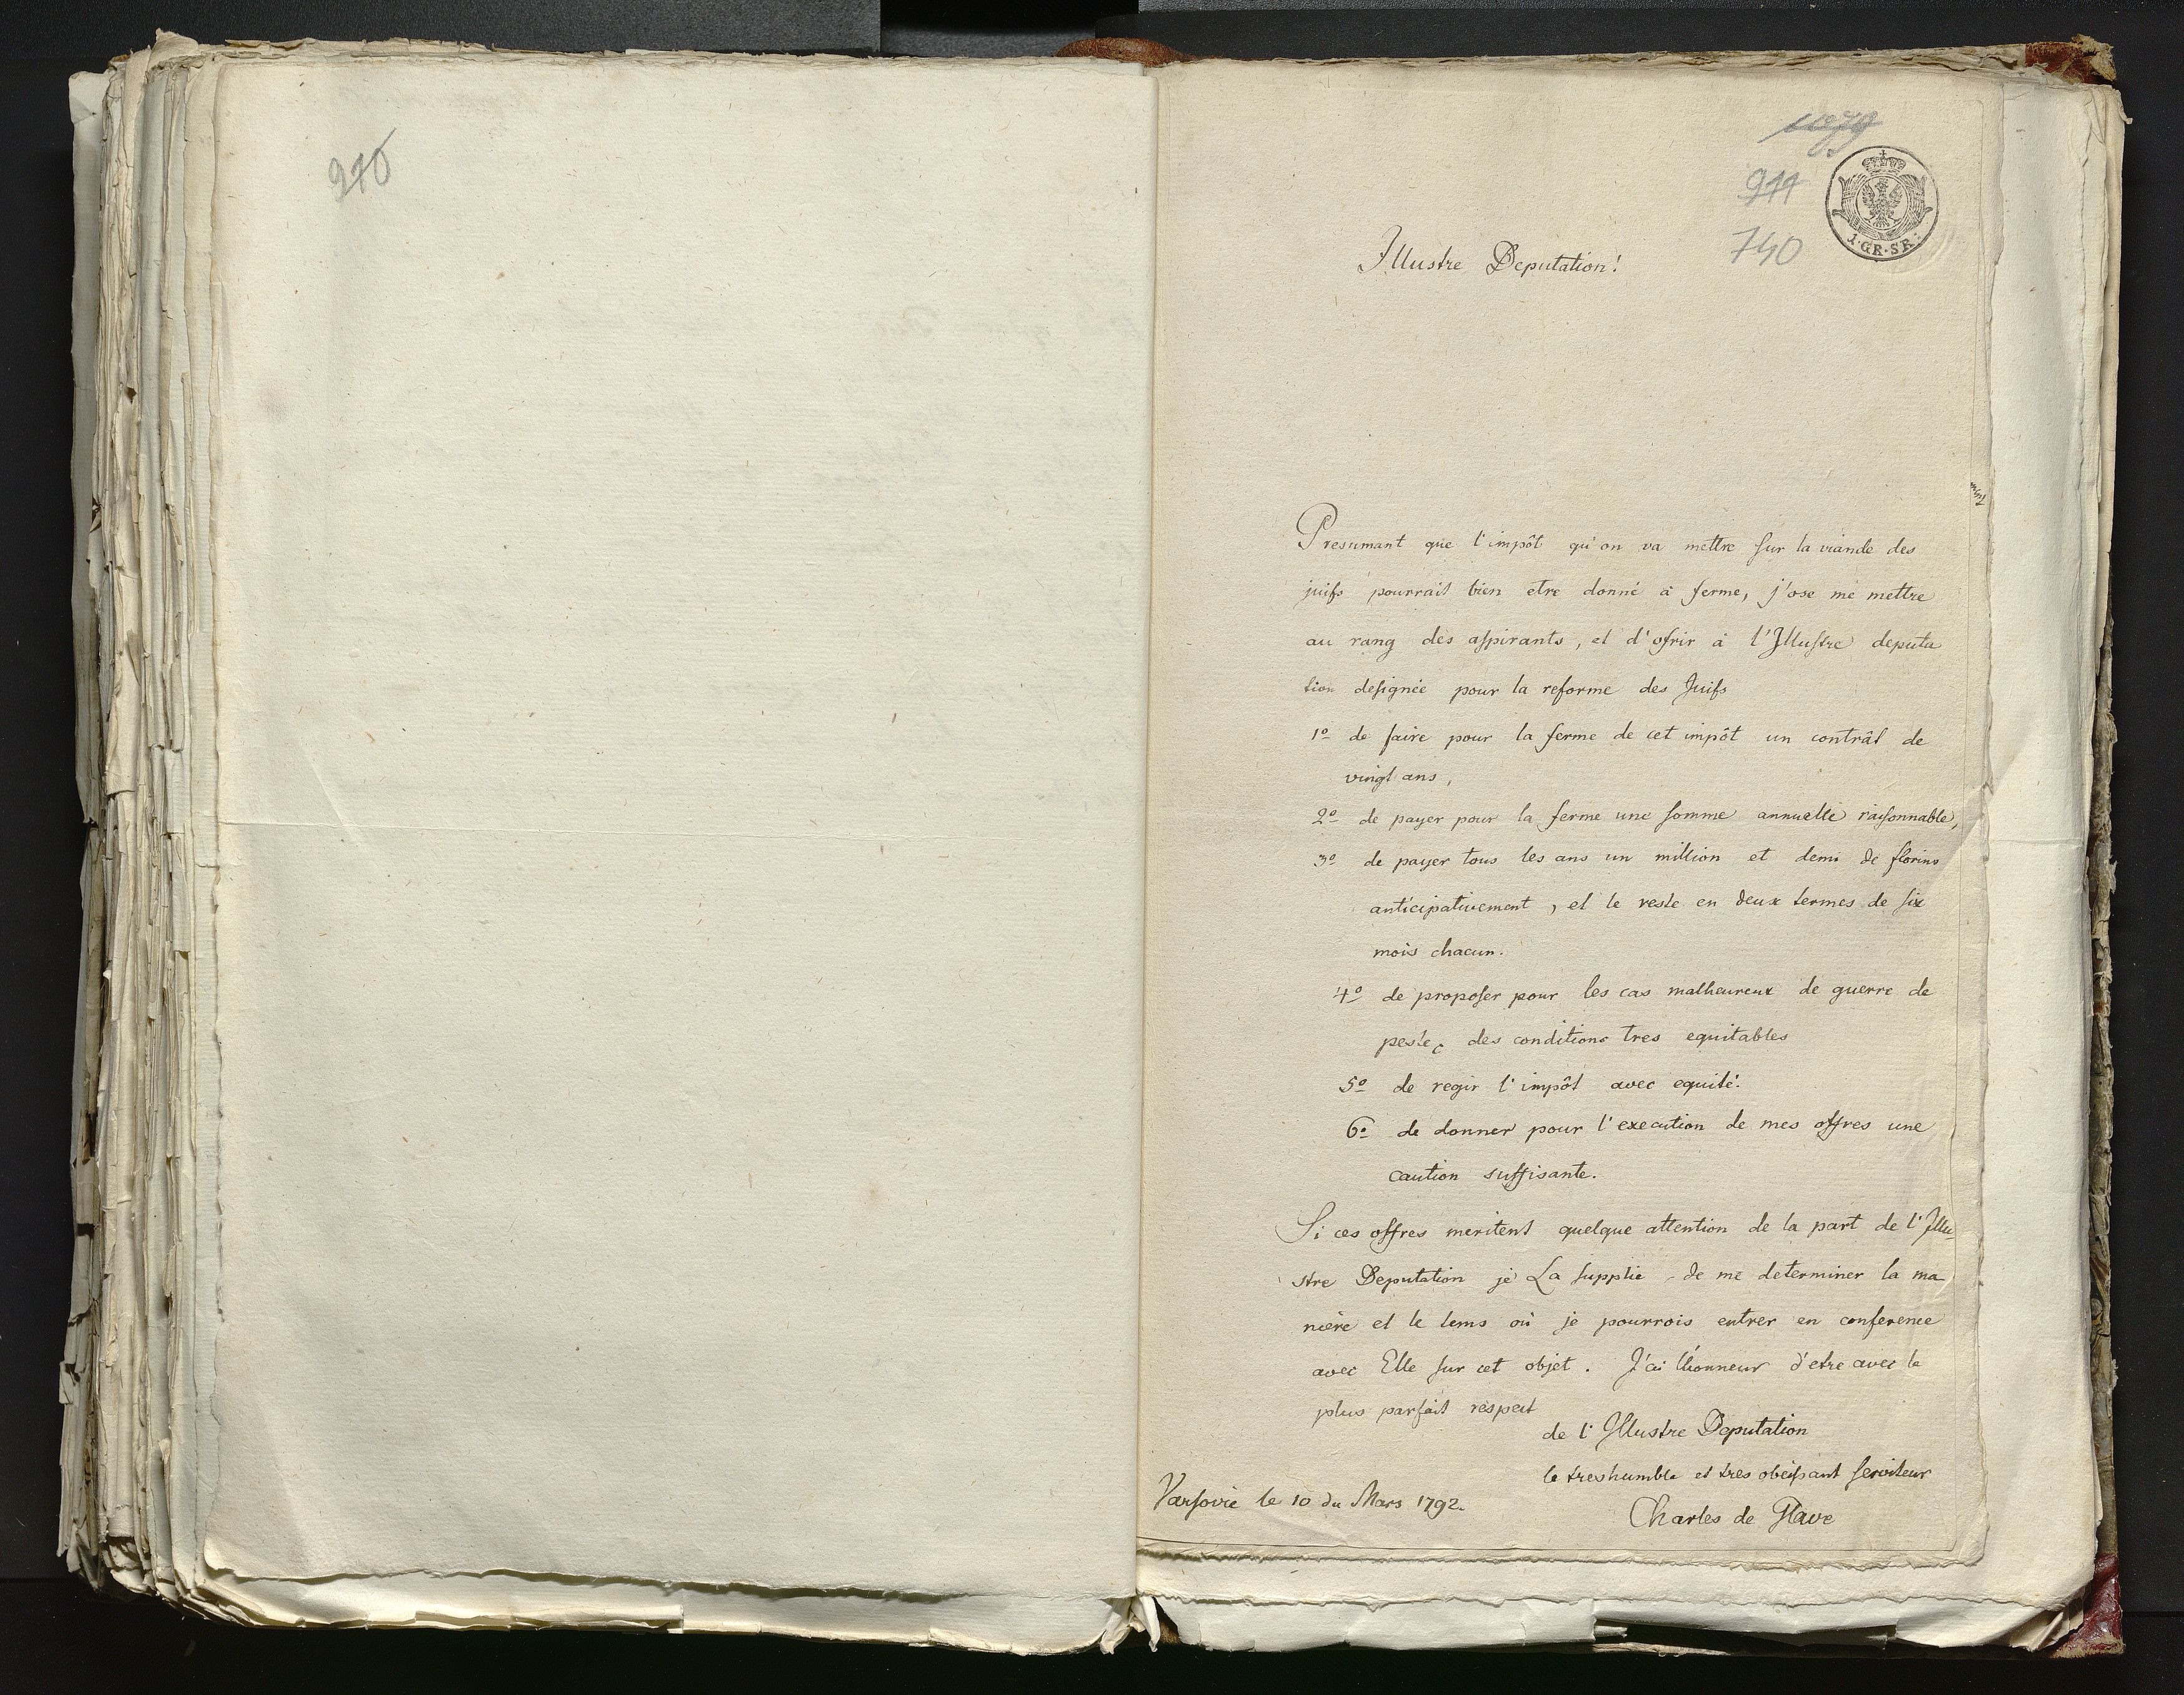 910
911
740
1.GR.SR.
Illustre Deputation!
Presumant que l'impôt qu'on va mettre sur la viande des
juifs pourrait bien etre donné à ferme, j'ose me mettre
au rang des aspirants, et d'ofrir à l'Illustre deputa
tion designée pour la reforme des Juifs
1º de faire pour la ferme de cet impôt un contrât de
vingt ans,
2º de payer pour la ferme une somme annuelle raisonnable,
3º de payer tous les ans un million et demi de florins
anticipativement, et le reste en deux termes de six
mois chacun.
4º de proposer pour les cas malheureux de guerre de
peste, des conditions tres equitables
5º de regir l'impôt avec equité.
6º de donner pour l'execution de mes offres une
caution suffisante.
Si ces offres meritent quelque attention de la part de l'Illu
stre Deputation je La supplie de me determiner la ma
niere et le tems où je pourrois entrer en conference
avec Elle sur cet objet. J'ai l'honneur d'etre avec le
plus parfait respect
de l'Illustre Deputation
le treshumble et tres obeissant serviteur
Varsovie le 10 du Mars 1792.
Charles de Glave